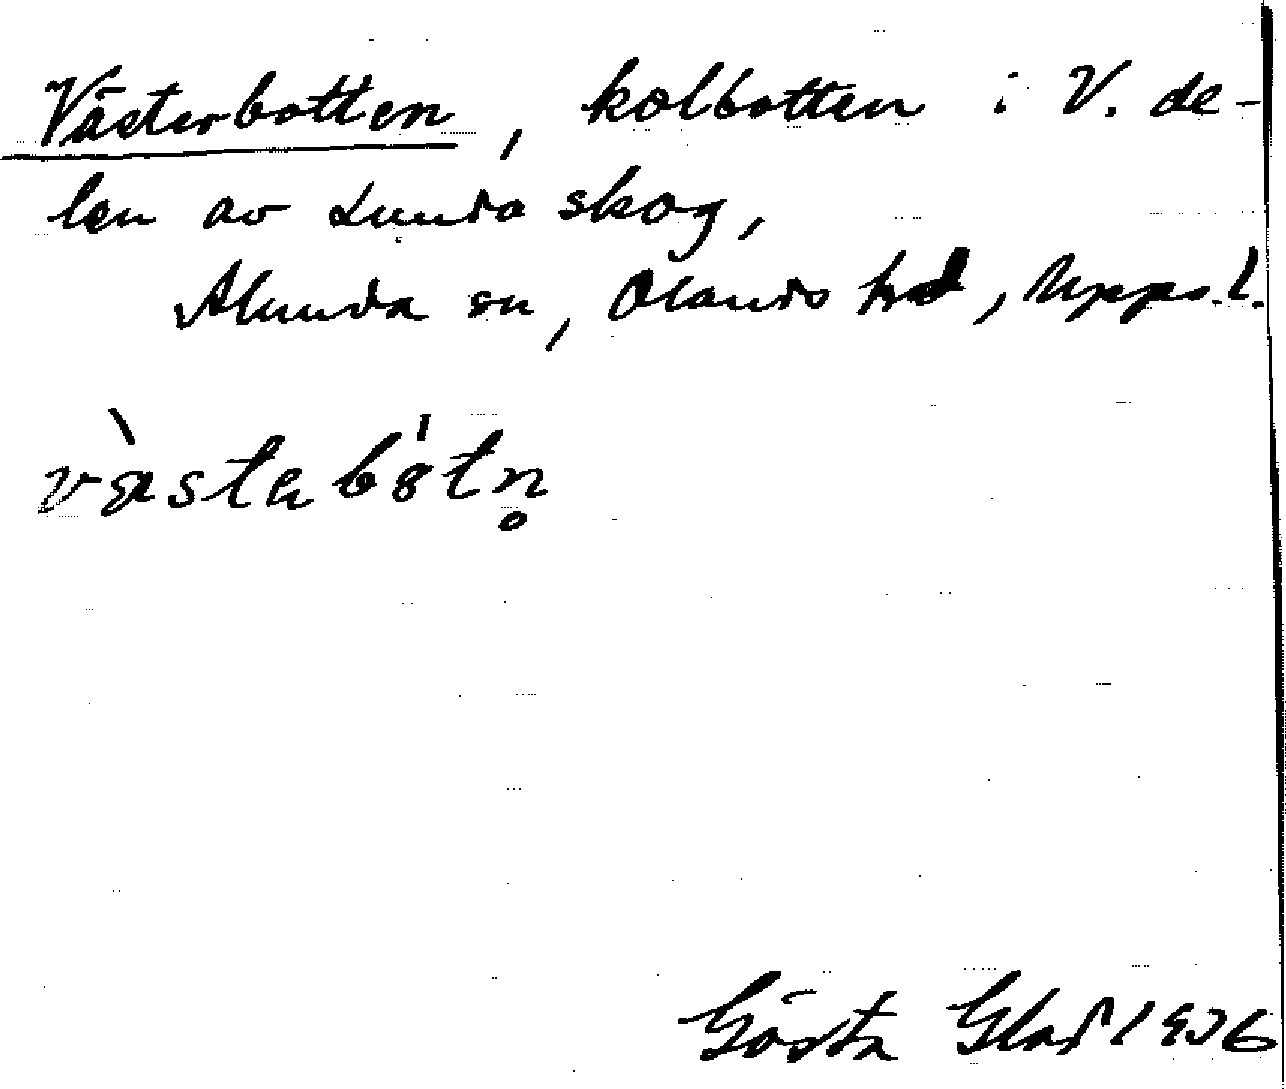 Västerbotten, kolbotten i V. de-
len av Lunda skog,
Alunda sn, Olands hrd, Upps. l.
västabòtn̥
Gösta Glad 1926